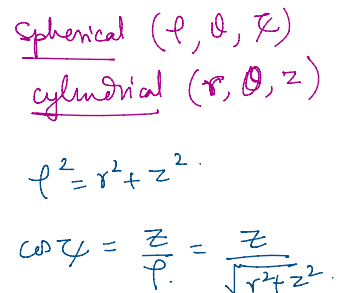 Spherical (ρ, θ, ψ)
cylindrical (r, θ, z)
ρ² = r² + z².
cos ψ = z/ρ. = z/√(r² + z²).